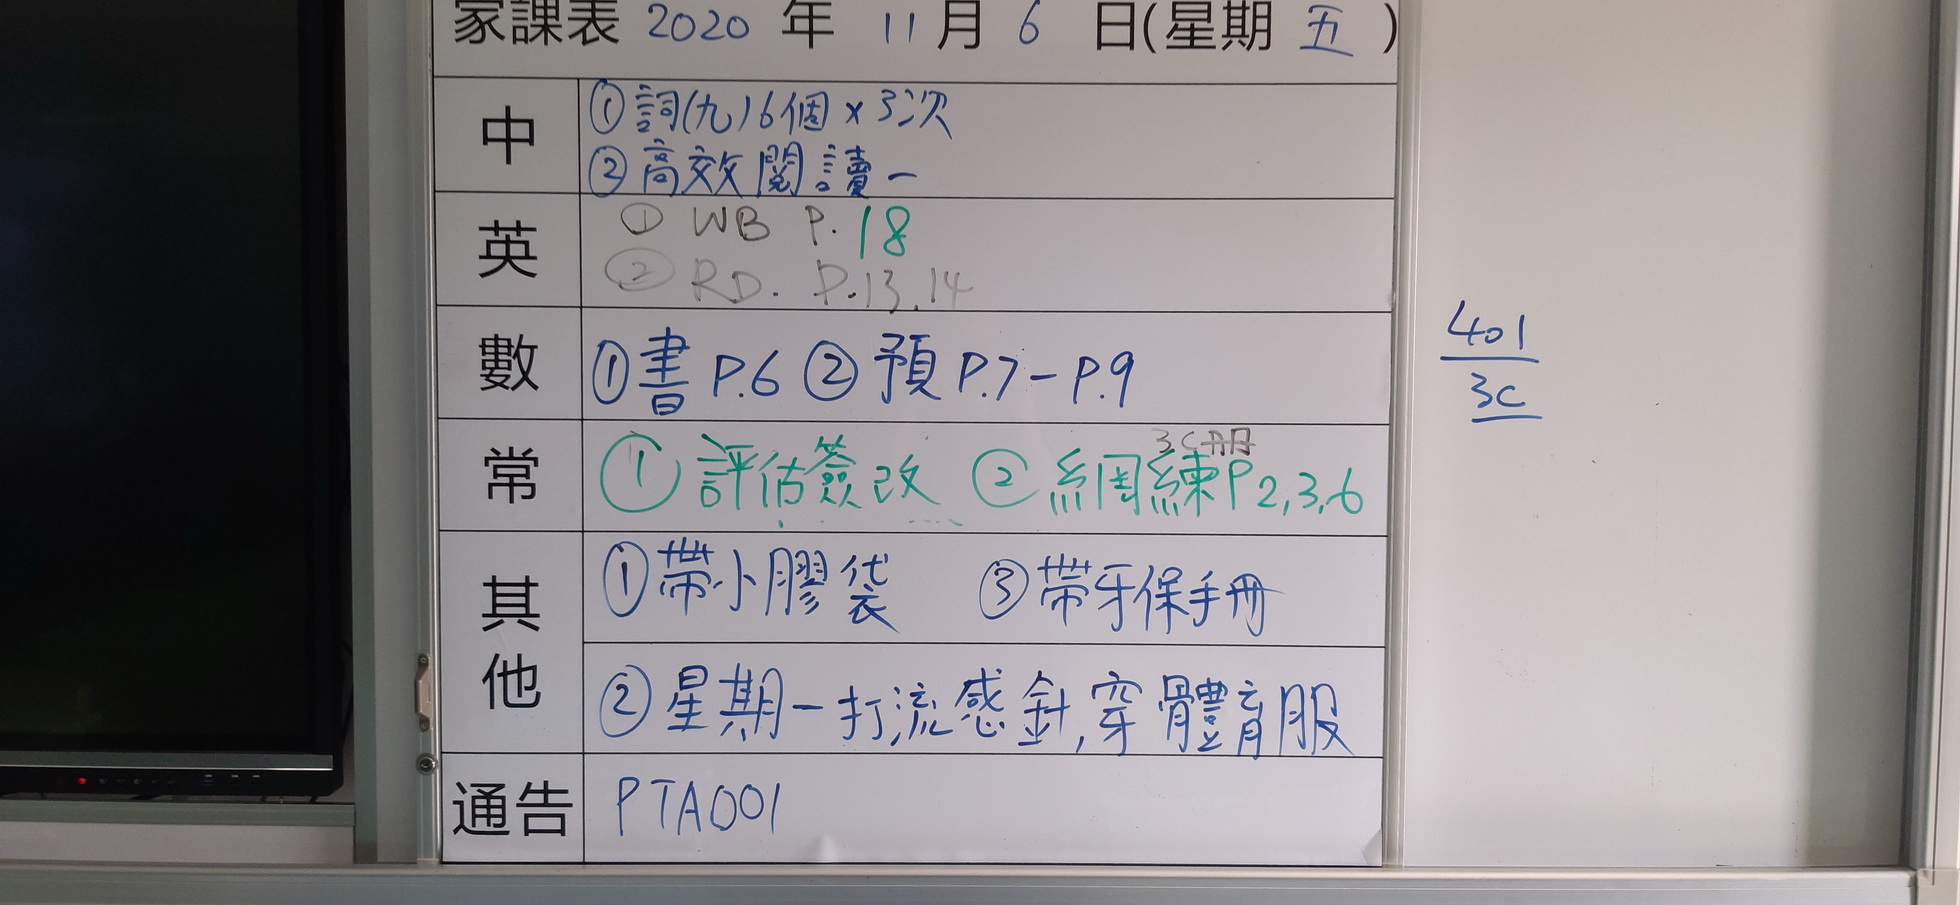 家課表 2020 年 11 月 6 日(星期 五 )
中
①詞(九)6個×3次
②高效閱讀一
英
① WB P.18
② RD. P.13,14
數
①書P.6 ②預P.7-P.9
常
3C冊
①評估簽改 ②網練P2,3,6
其他
①帶小膠袋 ③帶牙保手冊
②星期一打流感針,穿體育服
通告
PTA001
401
3C